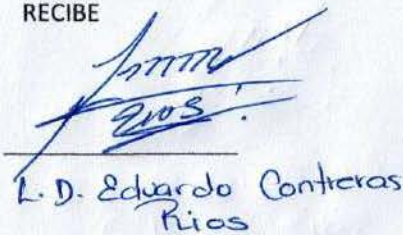 RECIBE
Rios
L.D. Eduardo Contreras
Rios